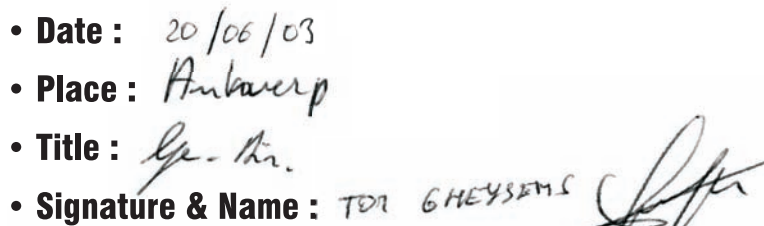 • Date : 20/06/03
• Place : Antwerp
• Title :
• Signature & Name : TOR GHEYSENS